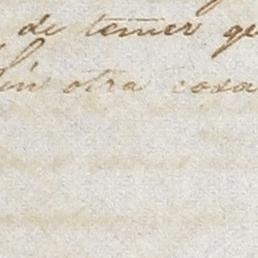 de temer que
Sin otra cosa